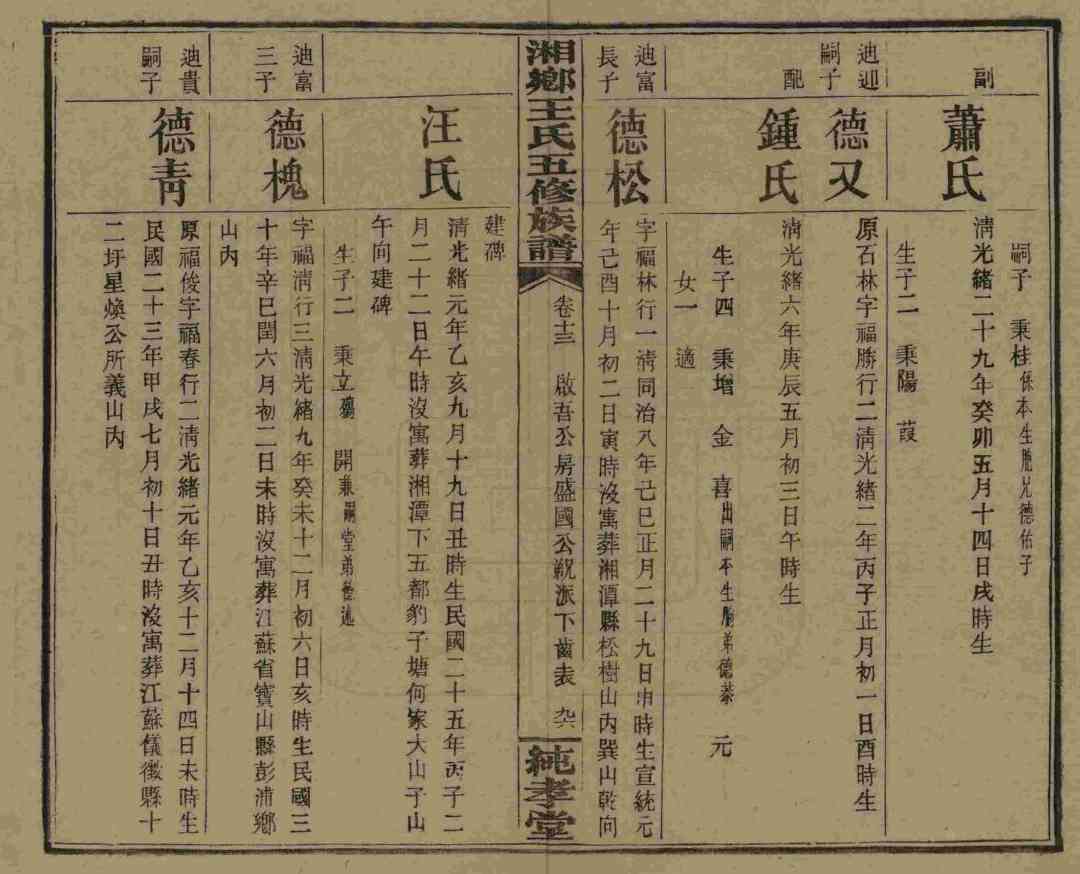 副
蕭氏
嗣子 秉桂係本生胞兄德佑子
清光緒二十九年癸卯五月十四日戌時生
生子二 秉陽 葭
迪迎
嗣子
德又
原石林字福勝行二清光緒二年丙子正月初一日酉時生
配
鍾氏
清光緒六年庚辰五月初三日午時生
生子四 秉增 金 喜出嗣本生胞弟德棻 元
女一 適
迪富
長子
德松
字福林行一清同治八年己巳正月二十九日申時生宣統元
年己酉十月初二日寅時沒寓葬湘潭縣松樹山內巽山乾向
湘鄉王氏五修族譜
卷十三 啟吾公房盛國公祝派下齒表
純孝堂
建碑
汪氏
清光緒元年乙亥九月十九日丑時生民國二十五年丙子二
月二十二日午時沒寓葬湘潭下五都豹子塘何家大山子山
午向建碑
生子二 秉立 開兼嗣堂弟德
迪富
三子
德槐
字福清行三清光緒九年癸未十二月初六日亥時生民國三
十年辛巳閏六月初二日未時沒寓葬江蘇省寶山縣彭浦鄉
山內
迪貴
嗣子
德青
原福俊字福春行二清光緒元年乙亥十二月十四日未時生
民國二十三年甲戌七月初十日丑時沒寓葬江蘇儀徵縣十
二圩星煥公所義山內